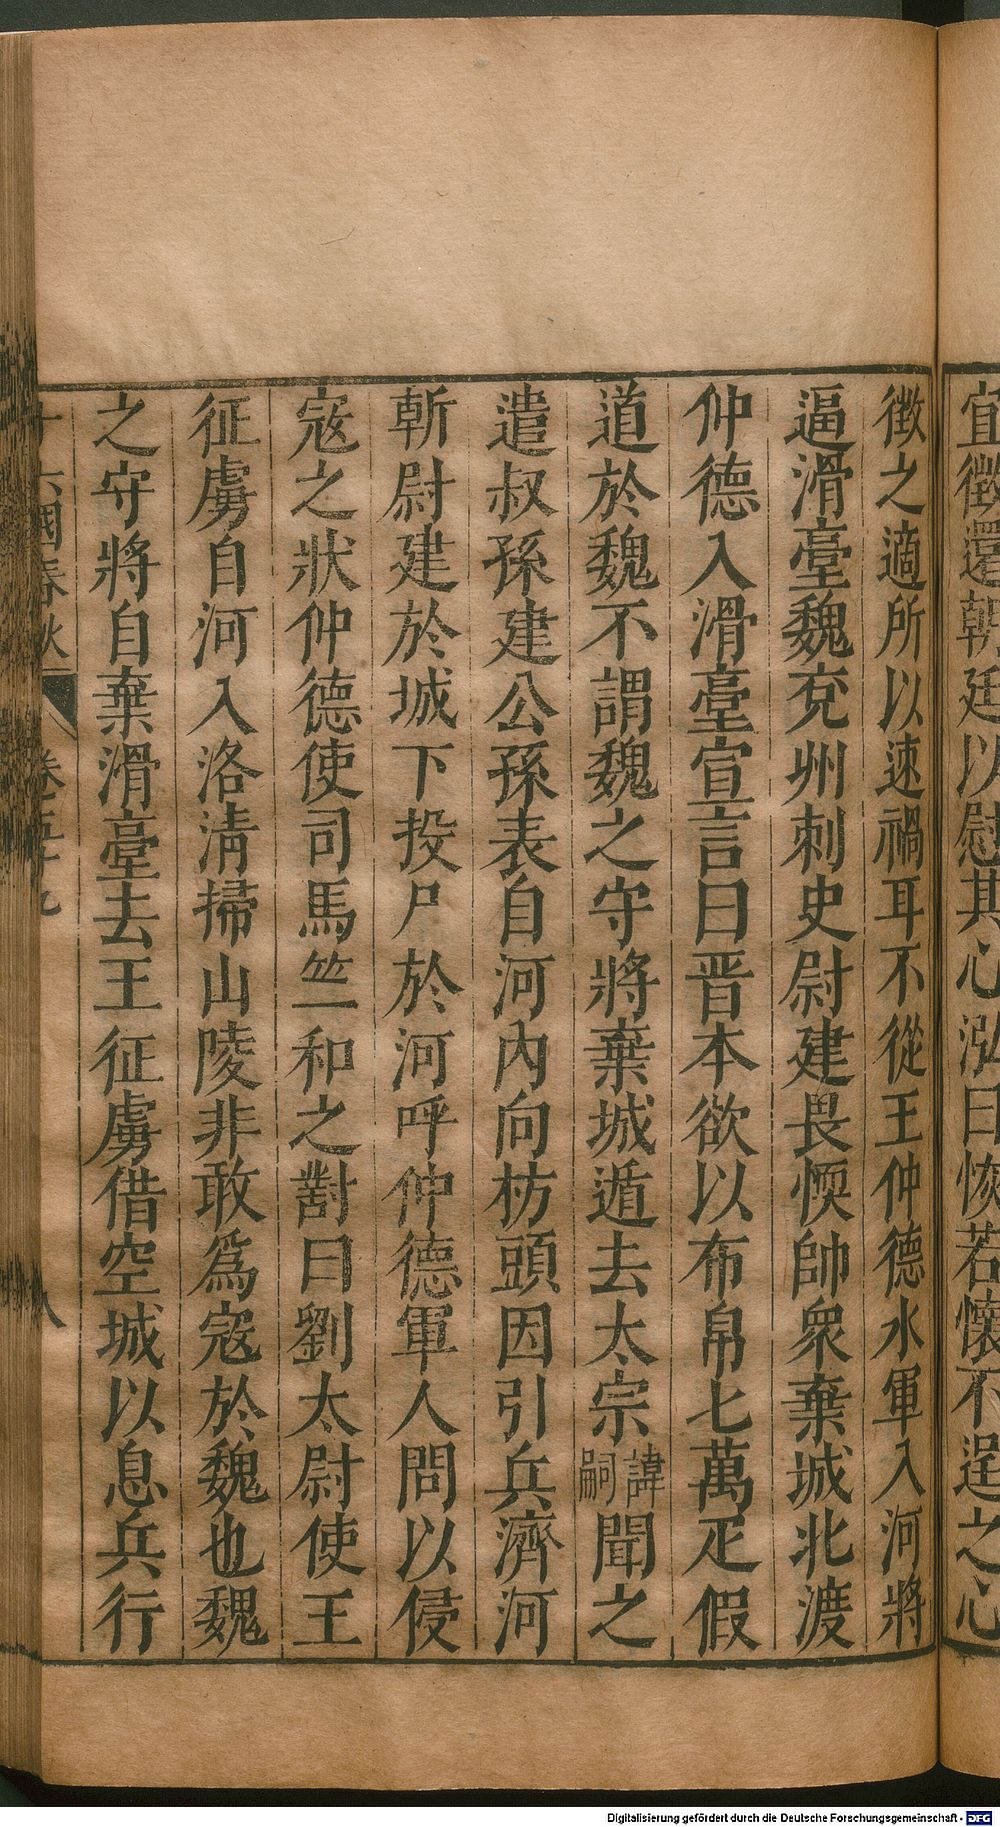 宜徵還朝廷以慰其心泓曰恢若懷不逞之心
徵之適所以速禍耳不從王仲德水軍入河將
逼滑臺魏兗州刺史尉建畏愞帥衆棄城北渡
仲德入滑臺宣言曰晋本欲以布帛七萬疋假
道於魏不謂魏之守將棄城遁去太宗諱嗣聞之
遣叔孫建公孫表自河內向枋頭因引兵濟河
斬尉建於城下投尸於河呼仲德軍人問以侵
寇之狀仲德使司馬竺和之對曰劉太尉使王
征虜自河入洛清掃山陵非敢爲寇於魏也魏
之守將自棄滑臺去王征虜借空城以息兵行
十六國春秋 卷五十九 八
Digitalisierung gefördert durch die Deutsche Forschungsgemeinschaft - DFG